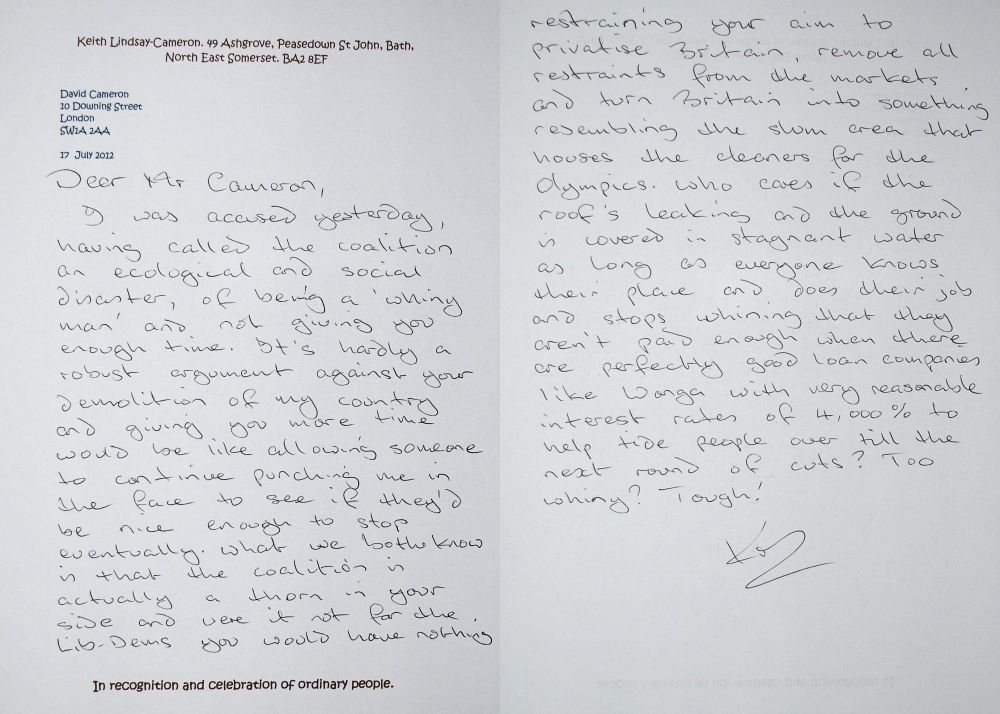 Keith Lindsay-Cameron. 49 Ashgrove, Peasedown St John, Bath,
North East Somerset. BA2 8EF
David Cameron
10 Downing Street
London
SW1A 2AA
17 July 2012
Dear Mr Cameron,
I was accused yesterday,
having called the coalition
an ecological and social
disaster, of being a 'whiny
man' and not giving you
enough time. It's hardly a
robust argument against your
demolition of my country
and giving you more time
would be like allowing someone
to continue punching me in
the face to see if they'd
be nice enough to stop
eventually. What we both know
is that the coalition is
actually a thorn in your
side and were it not for the
Lib-Dems you would have nothing
In recognition and celebration of ordinary people.
restraining your aim to
privatise Britain, remove all
restraints from the markets
and turn Britain into something
resembling the slum area that
houses the cleaners for the
Olympics. Who cares if the
roof's leaking and the ground
is covered in stagnant water
as long as everyone knows
their place and does their job
and stops whining that they
aren't paid enough when there
are perfectly good loan companies
like Wonga with very reasonable
interest rates of 4,000% to
help tide people over till the
next round of cuts? Too
whiny? Tough!